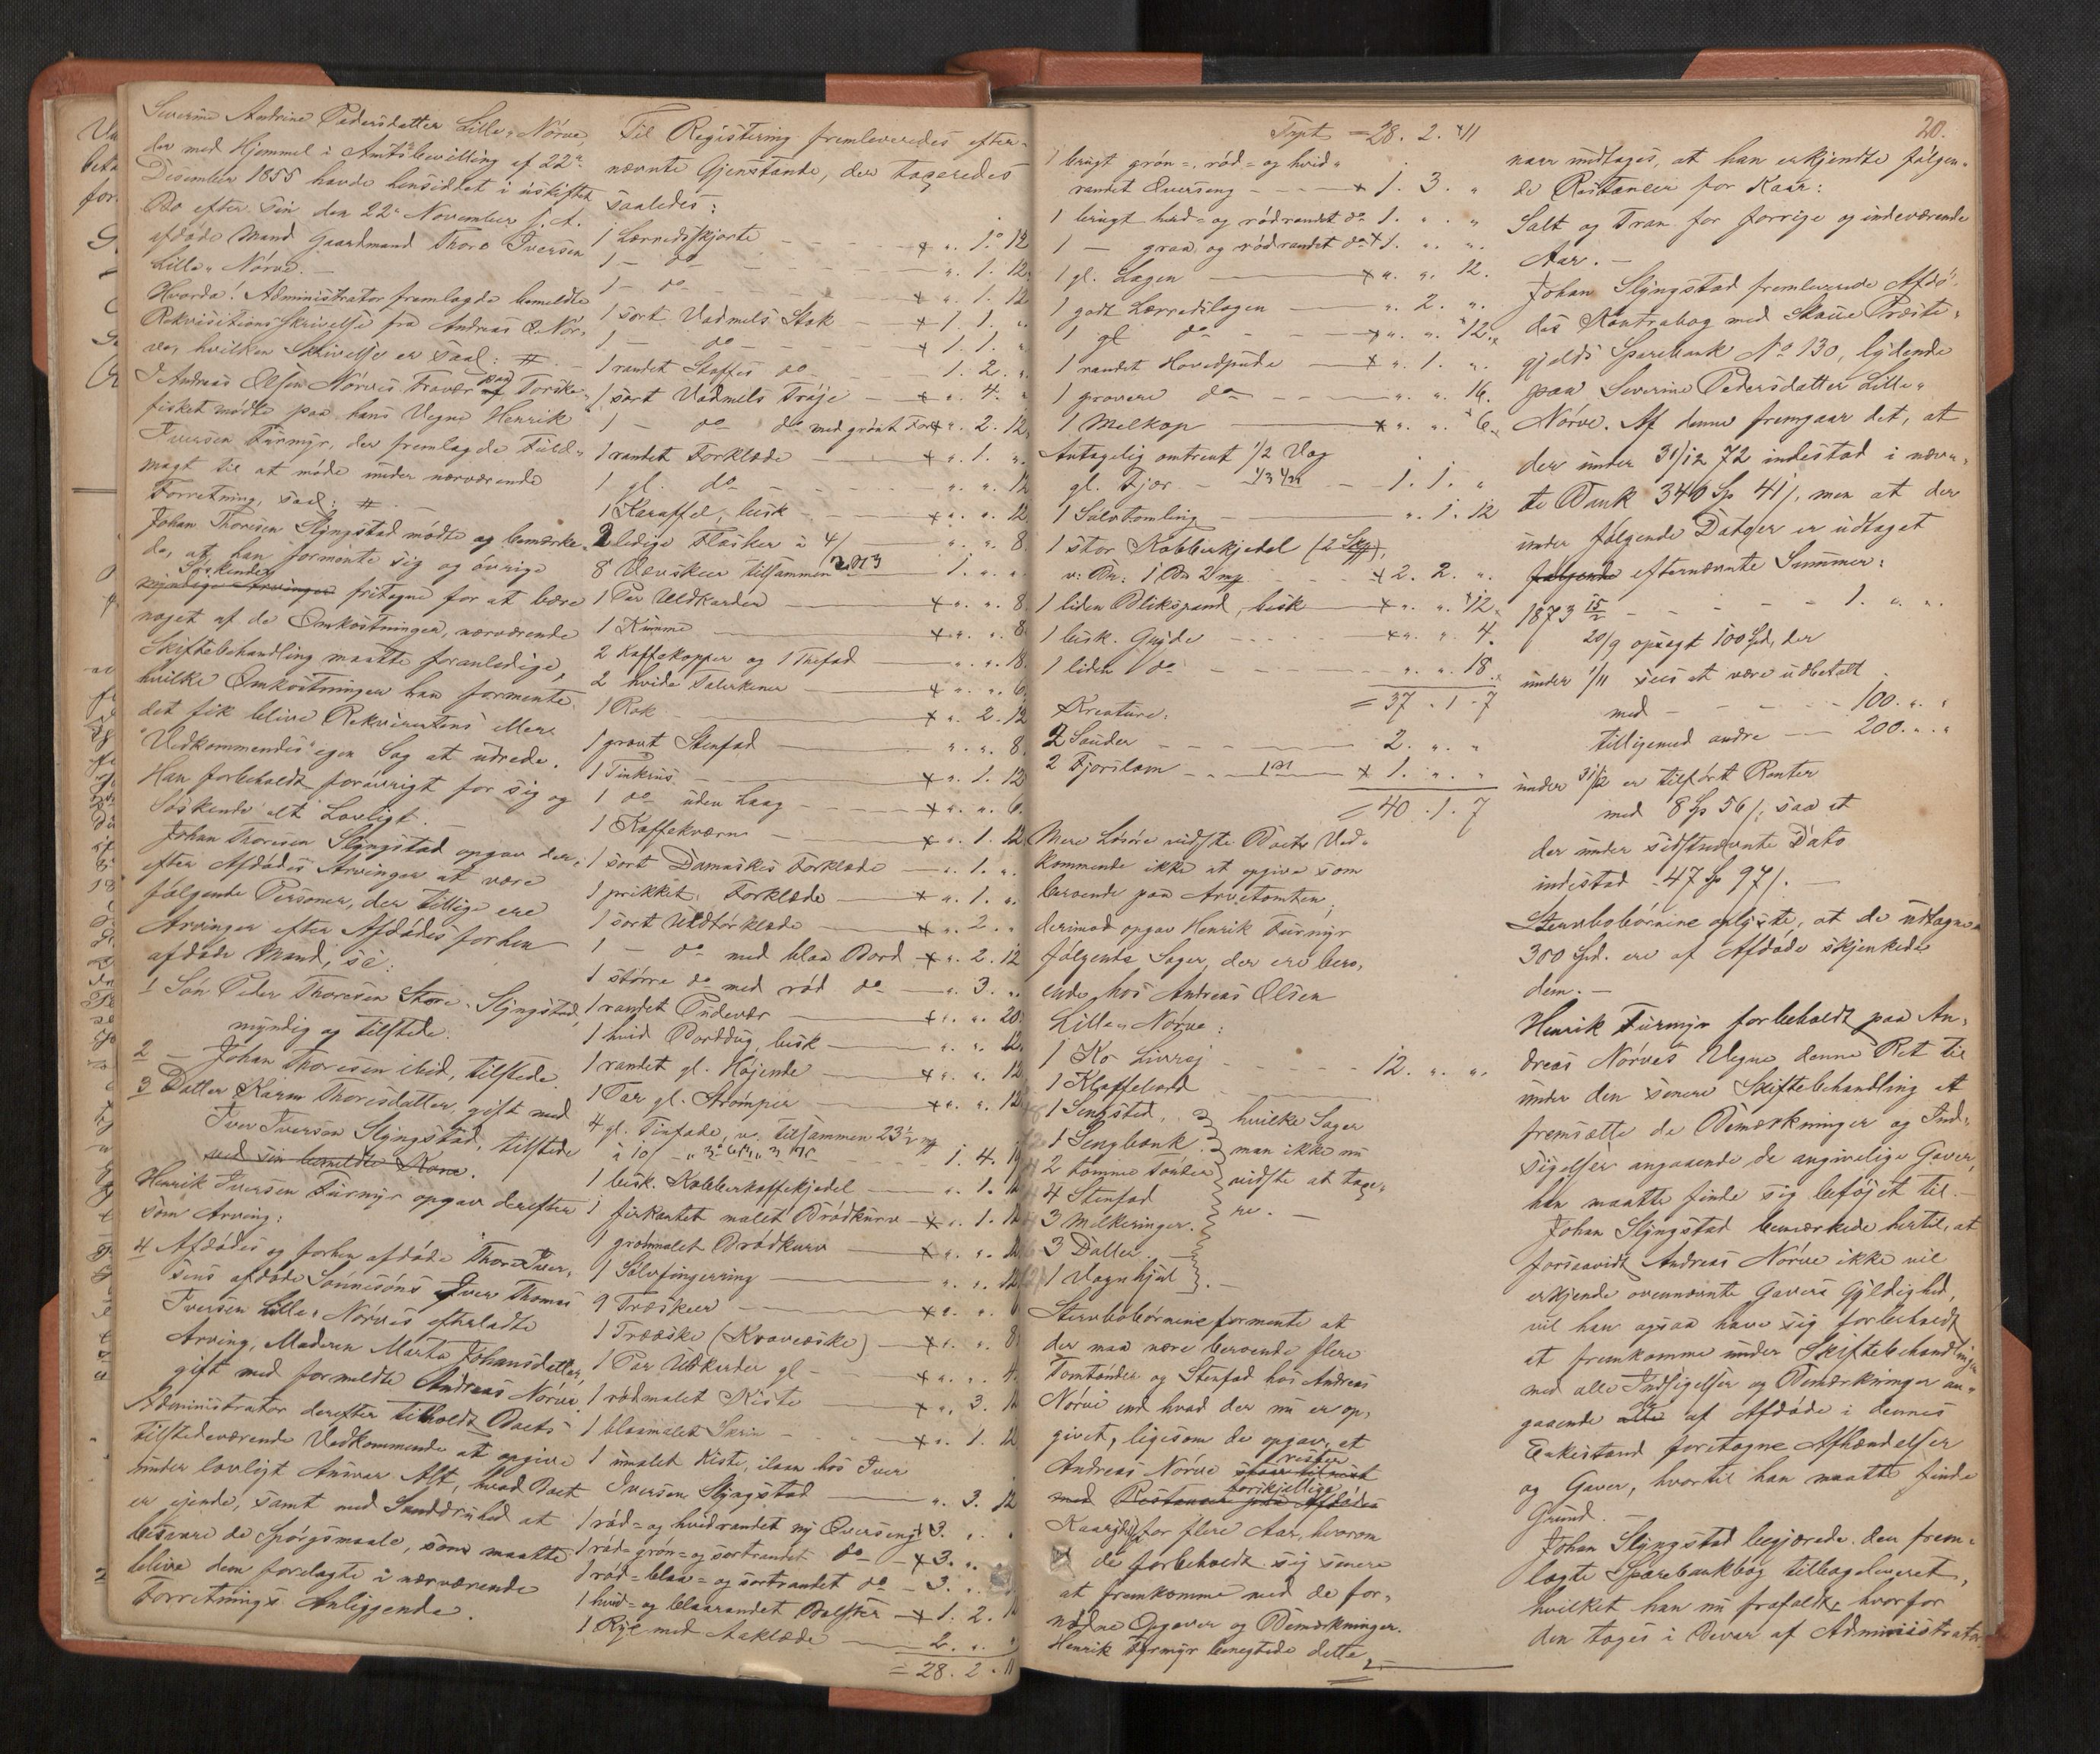 Severine Andrine Pedersdatter Lille-Nörve,
der med Hjemmel i Amtsbevilling af 22de
Desember 1855 havde hensiddet i uskiftet
Bo efter sin den 22de November s. A.
afdöde Mand Gaardmand Thore Iversen
Lille-Nörve. —
Hvorda! Administrator fremlagde bemeldte
Rekvisitionsskrivelse fra Andreas O. Nör-
ve, hvilken Skrivelse er saal: #. —
I Andreas Olsen Nörves Fravær paa Torske-
fisket mödte paa hans Vegne Henrik
Iversen Furmyr, der fremlagde Fuld-
magt til at möde under nærværende
Forretning, saal: #. —
Johan Thoresen Slyngstad mödte og bemærke-
de, at han formente sig og övrige
Söskende
myndige Arvinger fritagne for at bære
noget af de Omkostninger, nærværende
Skiftebehandling maatte foranledige,
hvilke Omkostninger han formente
det fik blive Rekvirentens eller
Vedkommendes egen Sag at udrede.
Han forbeholdt forövrigt for sig og
Söskende alt Lovligt. —
Johan Thoresen Slyngstad opgav der-
efter Afdödes Arvinger at være
fölgende Personer, der tillige ere
Arvinger efter Afdödes forhen
afdöde Mand, se:
1 Sön Peder Thoresen Store-Slyngstad,
myndig og tilstede.
2 — Johan Thoresen ibid, tilstede.
3 Datter Karen Thoresdatter, gift med
Iver Iversen Slyngstad, tilstede
med sin bemeldte Kone.
Henrik Iversen Furmyr opgav derefter
som Arving:
4 Afdödes og forhen afdöde Thore Iver-
sens afdöde Sönnesöns Iver Thomas
Iversen Lille-Nörves efterladte
Arving, Moderen Marta Johansdatter,
gift med formeldte Andreas Nörve.
Administrator derefter tilholdt Boets
tilstedeværende Vedkommende at opgive
under lovligt Ansvar Alt, hvad Boet
er eiende, samt med Sanddruhed at
besvare de Spörgsmaale, som maatte
blive dem forelagte i nærværende
Forretnings Anliggende.
Til Registering fremleveredes efter-
nævnte Gjenstande, der taxeredes
saaledes:
1 Lærredsskjorte — x „. 1. 12
1 — do — „. 1. 12.
1 — do — x „. 1. 12
1 sort Vadmels Stak — x 1. 1. „
1 — do — x 1. 1. „
1 randet Stoffes do — 1. 2. „
1 sort Vadmels Tröje — x „. 4. „
1 — do do med grönt For x „. 2. 12.
1 randet Forklæde — x „. 1. „.
1 gl. do — „. „. 12
1 Karaffel, besk — x „. „. 12
2 ledige Flasker à 4/ — „. „. 8.
8 Vævskeer tilsammen — 1. „. „
1 Par Uldkarder — x „. „. 8.
1 Kumme — x „. „. 8.
2 Kaffekopper og 1 Thefad — „. „. 18.
2 hvide Talerkener — x „. „. 6.
1 Rok — x „. 2. 12
1 graat Stenfad — „. „. 8.
1 Tinkrus — x „. 1. 12
1 do uden Laag — x „. „. 6.
1 Kaffekværn — x „. 1. 12
1 sort Damaskes Forklæde — „. 1. „.
1 prikket Forklæde — x „. 1. „.
1 sort Uldtörklæde — x „. 2. „
1 — do med blaa Bord — x „. 2. 12
1 större do med röd do — „. 3. „.
1 randet Pudevær — x „. „. 20
1 hvid Borddug, besk — „. „. 12
1 randet gl. Höjende — x „. „. 12
1 Par gl. Strömper — x „. „. 12
4 gl. Tinfade, v. tilsammen 23 1/2
à 10/ — 1. 4.
1 besk. Kobberkaffekjedel — „. 1.
1 firkantet malet Brödkurv — x „. 1.
1 grönmalet Brödkurv — x „. „.
1 Sölvfingerring — „. „. 12
9 Træskeer — x „. „. 6
1 Træske (Kraveæske) — x „. „. 8
1 Par Uldkarder gl — x „. „. 4.
1 rödmalet Kiste — x „. 3.
1 blaamalet Skrin — x „. 1. 12
1 umalet Kiste, ilaan hos Iver
Iversen Slyngstad — „. 3. 12
1 röd- og hvidrandet ny Overseng x 3. „.
1 röd- grön- og sortrandet do — x 3. „.
1 röd- blaa- og sortrandet do — 3. „.
1 hvid- og blaarandet Bolster — x 1. 2.
1 Rye med Aaklæde — 2. „.
= 28. 2. 11
Trpt = 28. 2. 11
1 brugt grön-, röd- og hvid-
randet Overseng — x 1. 3. „
1 brugt hvid- og rödrandet do 1. „. „
1 — graa og rödrandet do x 1. „. „.
1 gl. Lagen — x „. „. 12.
1 godt Lærredslagen — „. 2. „.
1 gl do — x „. „. 12.
1 randet Hovedpude — x „. 1. „.
1 grovere do — „. „. 16.
1 Melkop — x „. „. 6.
Antagelig omtrent 1/2 Vog
gl. Fjær — 1. 1. „
1 Sölvtomling — „. 1. 12
1 stor Kobberkjedel (2 Skp),
v: Bn: 1 Bn 2 mp — x 2. 2. „.
1 liden Blikspand, besk — x „. „. 12.
1 besk. Gryde — x „. „. 4.
1 liden do — „. „. 18.
= 37. 1. 7
Kreature:
2 Sauder — 2. „. „
2 Fjorslam — x 1. „. „
= 40. 1. 7
Mere Lösöre vidste Boets Ved-
kommende ikke at opgive som
beroende paa Arvetomten,
derimod opgav Henrik Furmyr
fölgende Sager, der ere bero-
ende hos Andreas Olsen
Lille-Nörve:
1 Ko Livrej — 12. „. „.
1 Klaffebord —
1 Sengsted
1 Sengbænk
2 tomme Tönder
4 Stenfad
3 Melkeringer.
3 Daller. —
1 Vognhjul. —
hvilke Sager
man ikke nu
vidste at taxe-
re. —
Stervbobörnene formente at
der maa være beroende flere
Tomtönder og Stenfad hos Andreas
Nörve end hvad der nu er op-
givet, ligesom de opgav, at
Andreas Nörve rester
forskjellige
med Restancer paa Afdödes
Kaar for flere Aar, hvorom
de forbeholdt sig senere
at fremkomme med de for-
nödne Opgaver og Bemærkninger.
Henrik Furmyr benegtede dette,
20.
naar undtages, at han erkjendte fölgen-
de Restancer for Kaar:
Salt og Tran for forrige og indeværende
Aar. —
Johan Slyngstad fremleverede Afdö-
des Kontrabog med Skoue Præste-
gjelds Sparebank No 130, lydende
paa Severine Pedersdatter Lille-
Nörve. Af denne fremgaar det, at
der under 31/12 72 indestod i nævn-
te Bank 340 Sp 41/, men at der
under fölgende Datoer er udtaget
følgende efternævnte Summer:
1873 15/2 — 1. „. „.
20/9 opsagt 100 Spd, der
under 1/11 sees at være udbetalt
med — 100. „. „
tilligemed andre — 200. „. „
under 31/12 er tilfört Renter
med 8 Sp 56/, saa at
der under sidstnævnte Dato
indestod 47 Sp 97/. —
Stervbobörnene oplyste, at de udtagne
300 Spd. ere af Afdöde skjenkede
dem. —
Henrik Furmyr forbeholdt paa An-
dreas Nörves Vegne denne Ret til
under den senere Skiftebehandling at
fremsætte de Bemærkninger og Ind-
sigelser angaaende de angivelige Gaver,
han maatte finde sig beföjet til. —
Johan Slyngstad bemærkede hertil, at
forsaavidt Andreas Nörve ikke vil
erkjende ovennævnte Gavers Gyldighed,
vil han ogsaa have sig forbeholdt
at fremkomme under Skiftebehandlingen
med alle Indsigelser og Bemærkninger an-
gaaende de af Afdöde i dennes
Enkestand foretagne Afhændelser
og Gaver, hvortil han maatte finde
Grund. —
Johan Slyngstad begjærede den frem-
lagte Sparebankbog tilbageleveret,
hvilket han nu frafaldt, hvorfor
den toges i Bevar af Administrator